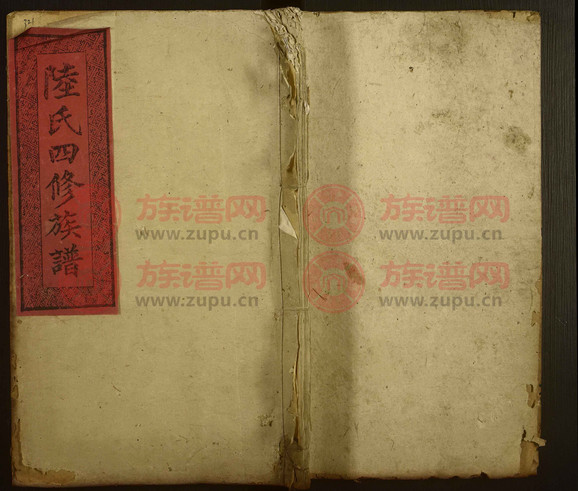 陸氏四修族譜
族谱网 族谱网
www.zupu.cn www.zupu.cn
族谱网 族谱网
www.zupu.cn www.zupu.cn